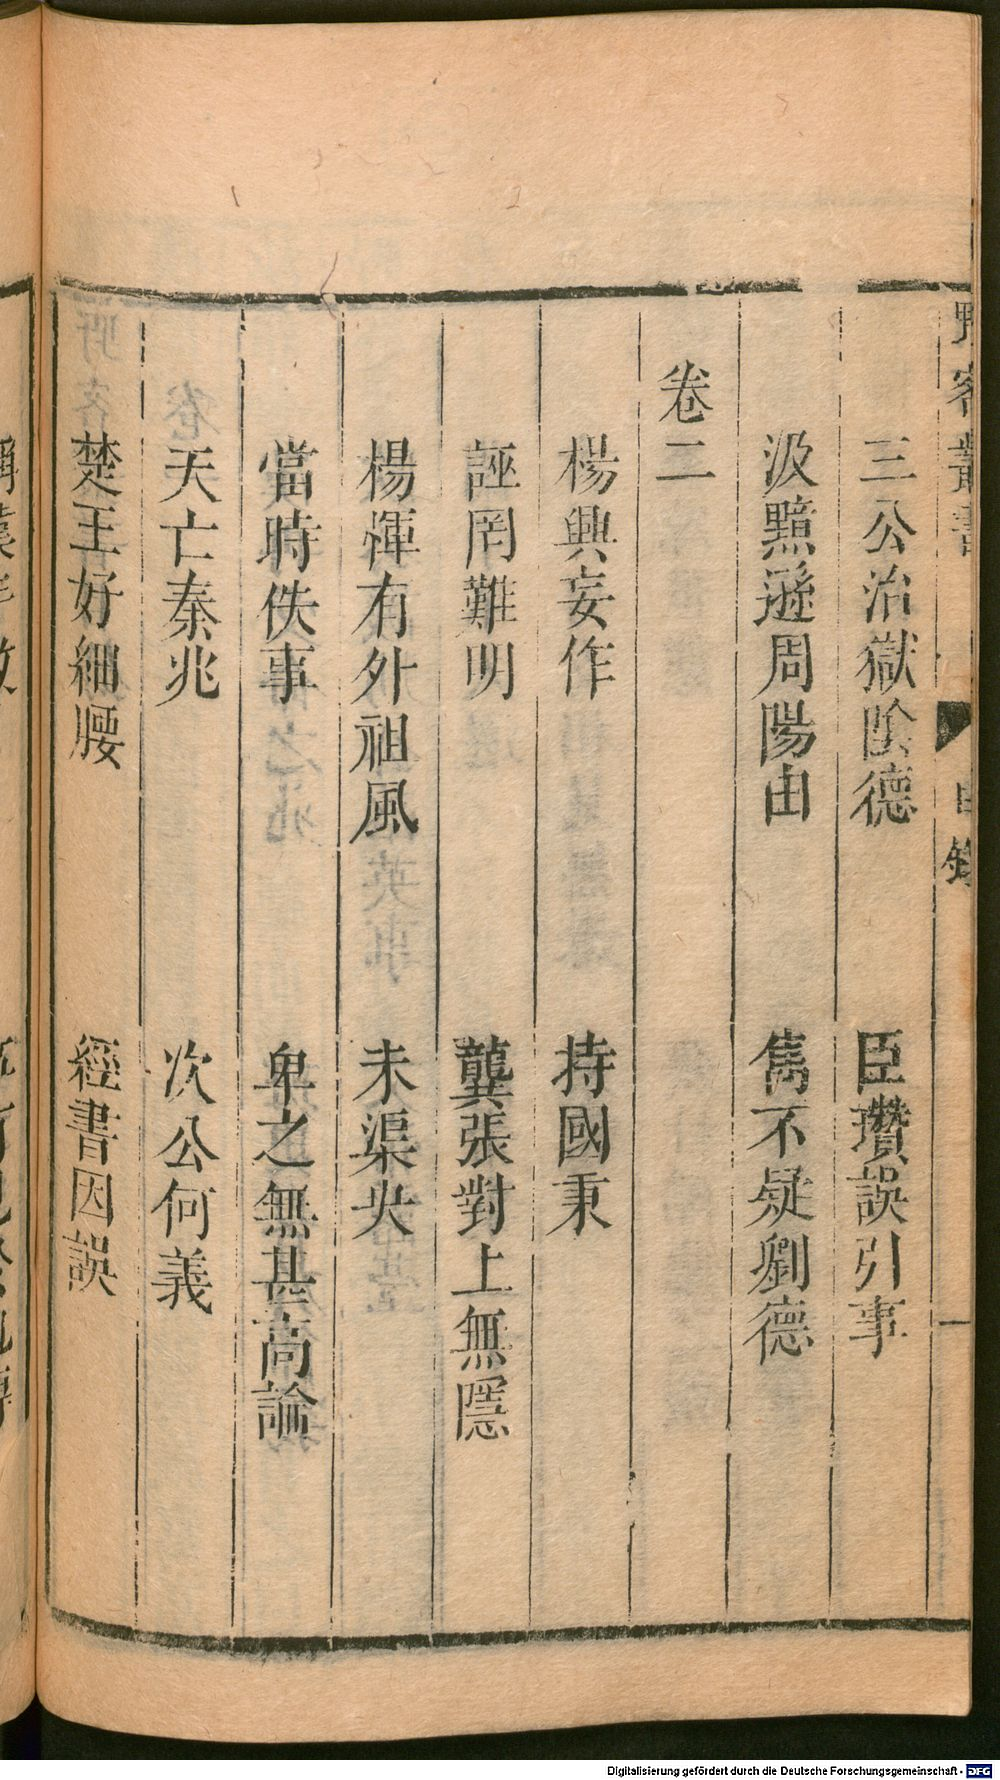 野客叢書 目錄 一
三公治獄陰德 臣瓚誤引事
汲黯遜周陽由 雋不疑劉德
卷二
楊興妄作 持國秉
誣罔難明 龔張對上無隱
楊惲有外祖風 未渠央
當時佚事 卑之無甚高論
天亡秦兆 次公何義
楚王好細腰 經書因誤
Digitalisierung gefördert durch die Deutsche Forschungsgemeinschaft - DFG